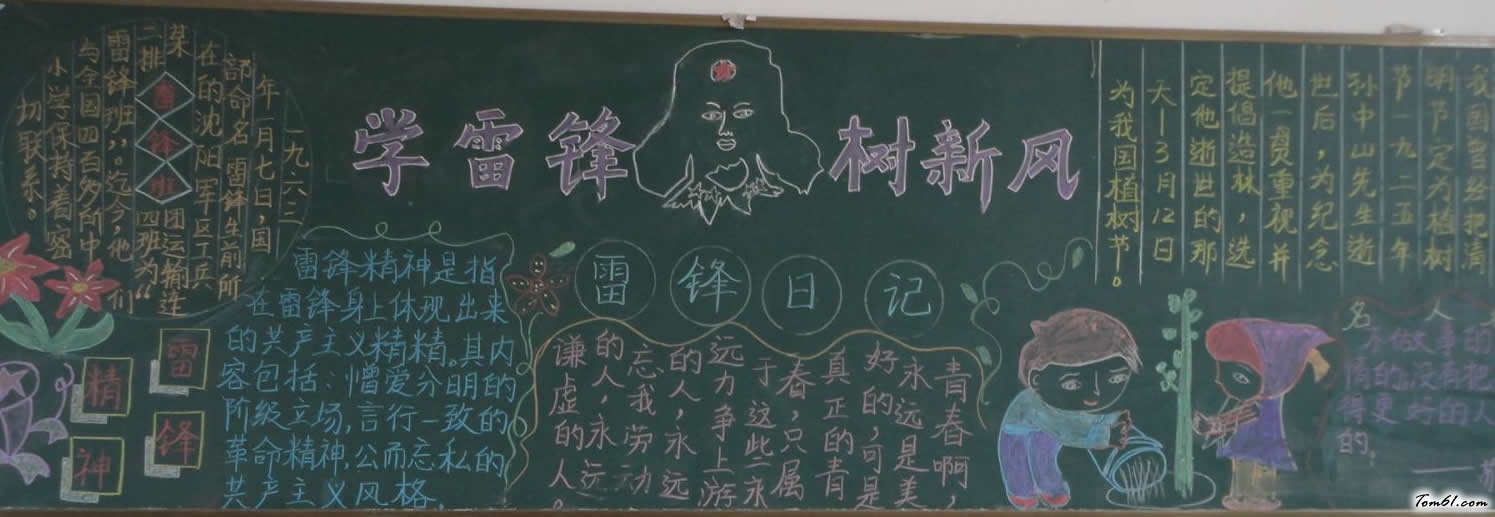 学雷锋 树新风
一九六三
年一月七日，国
部命名雷锋生前所
在的沈阳军区工兵
某 团运输连
二排 四班为“
雷锋班”。迄今，他们
与全国四百多所中
小学保持着密
切联系。
雷
锋
班
雷
锋
精
神
雷锋精神是指
在雷锋身上体现出来
的共产主义精精。其内
容包括：憎爱分明的
阶级立场，言行一致的
革命精神，公而忘私的
共产主义风格。
雷锋日记
青春啊，
永远是美
好的，可是
真正的青
春，只属
于这些永
远力争上游
的人，永远
忘我劳动
的人，永远
谦虚的人。
我国曾经把清
明节定为植树
节一九二五年
孙中山先生逝
世后，为纪念
他一贯重视并
提倡造林，选
定他逝世的那
天—3月12日
为我国植树节。
名人
不做事的
情的，没有把
得更好的人
的.
——
Tom61.com